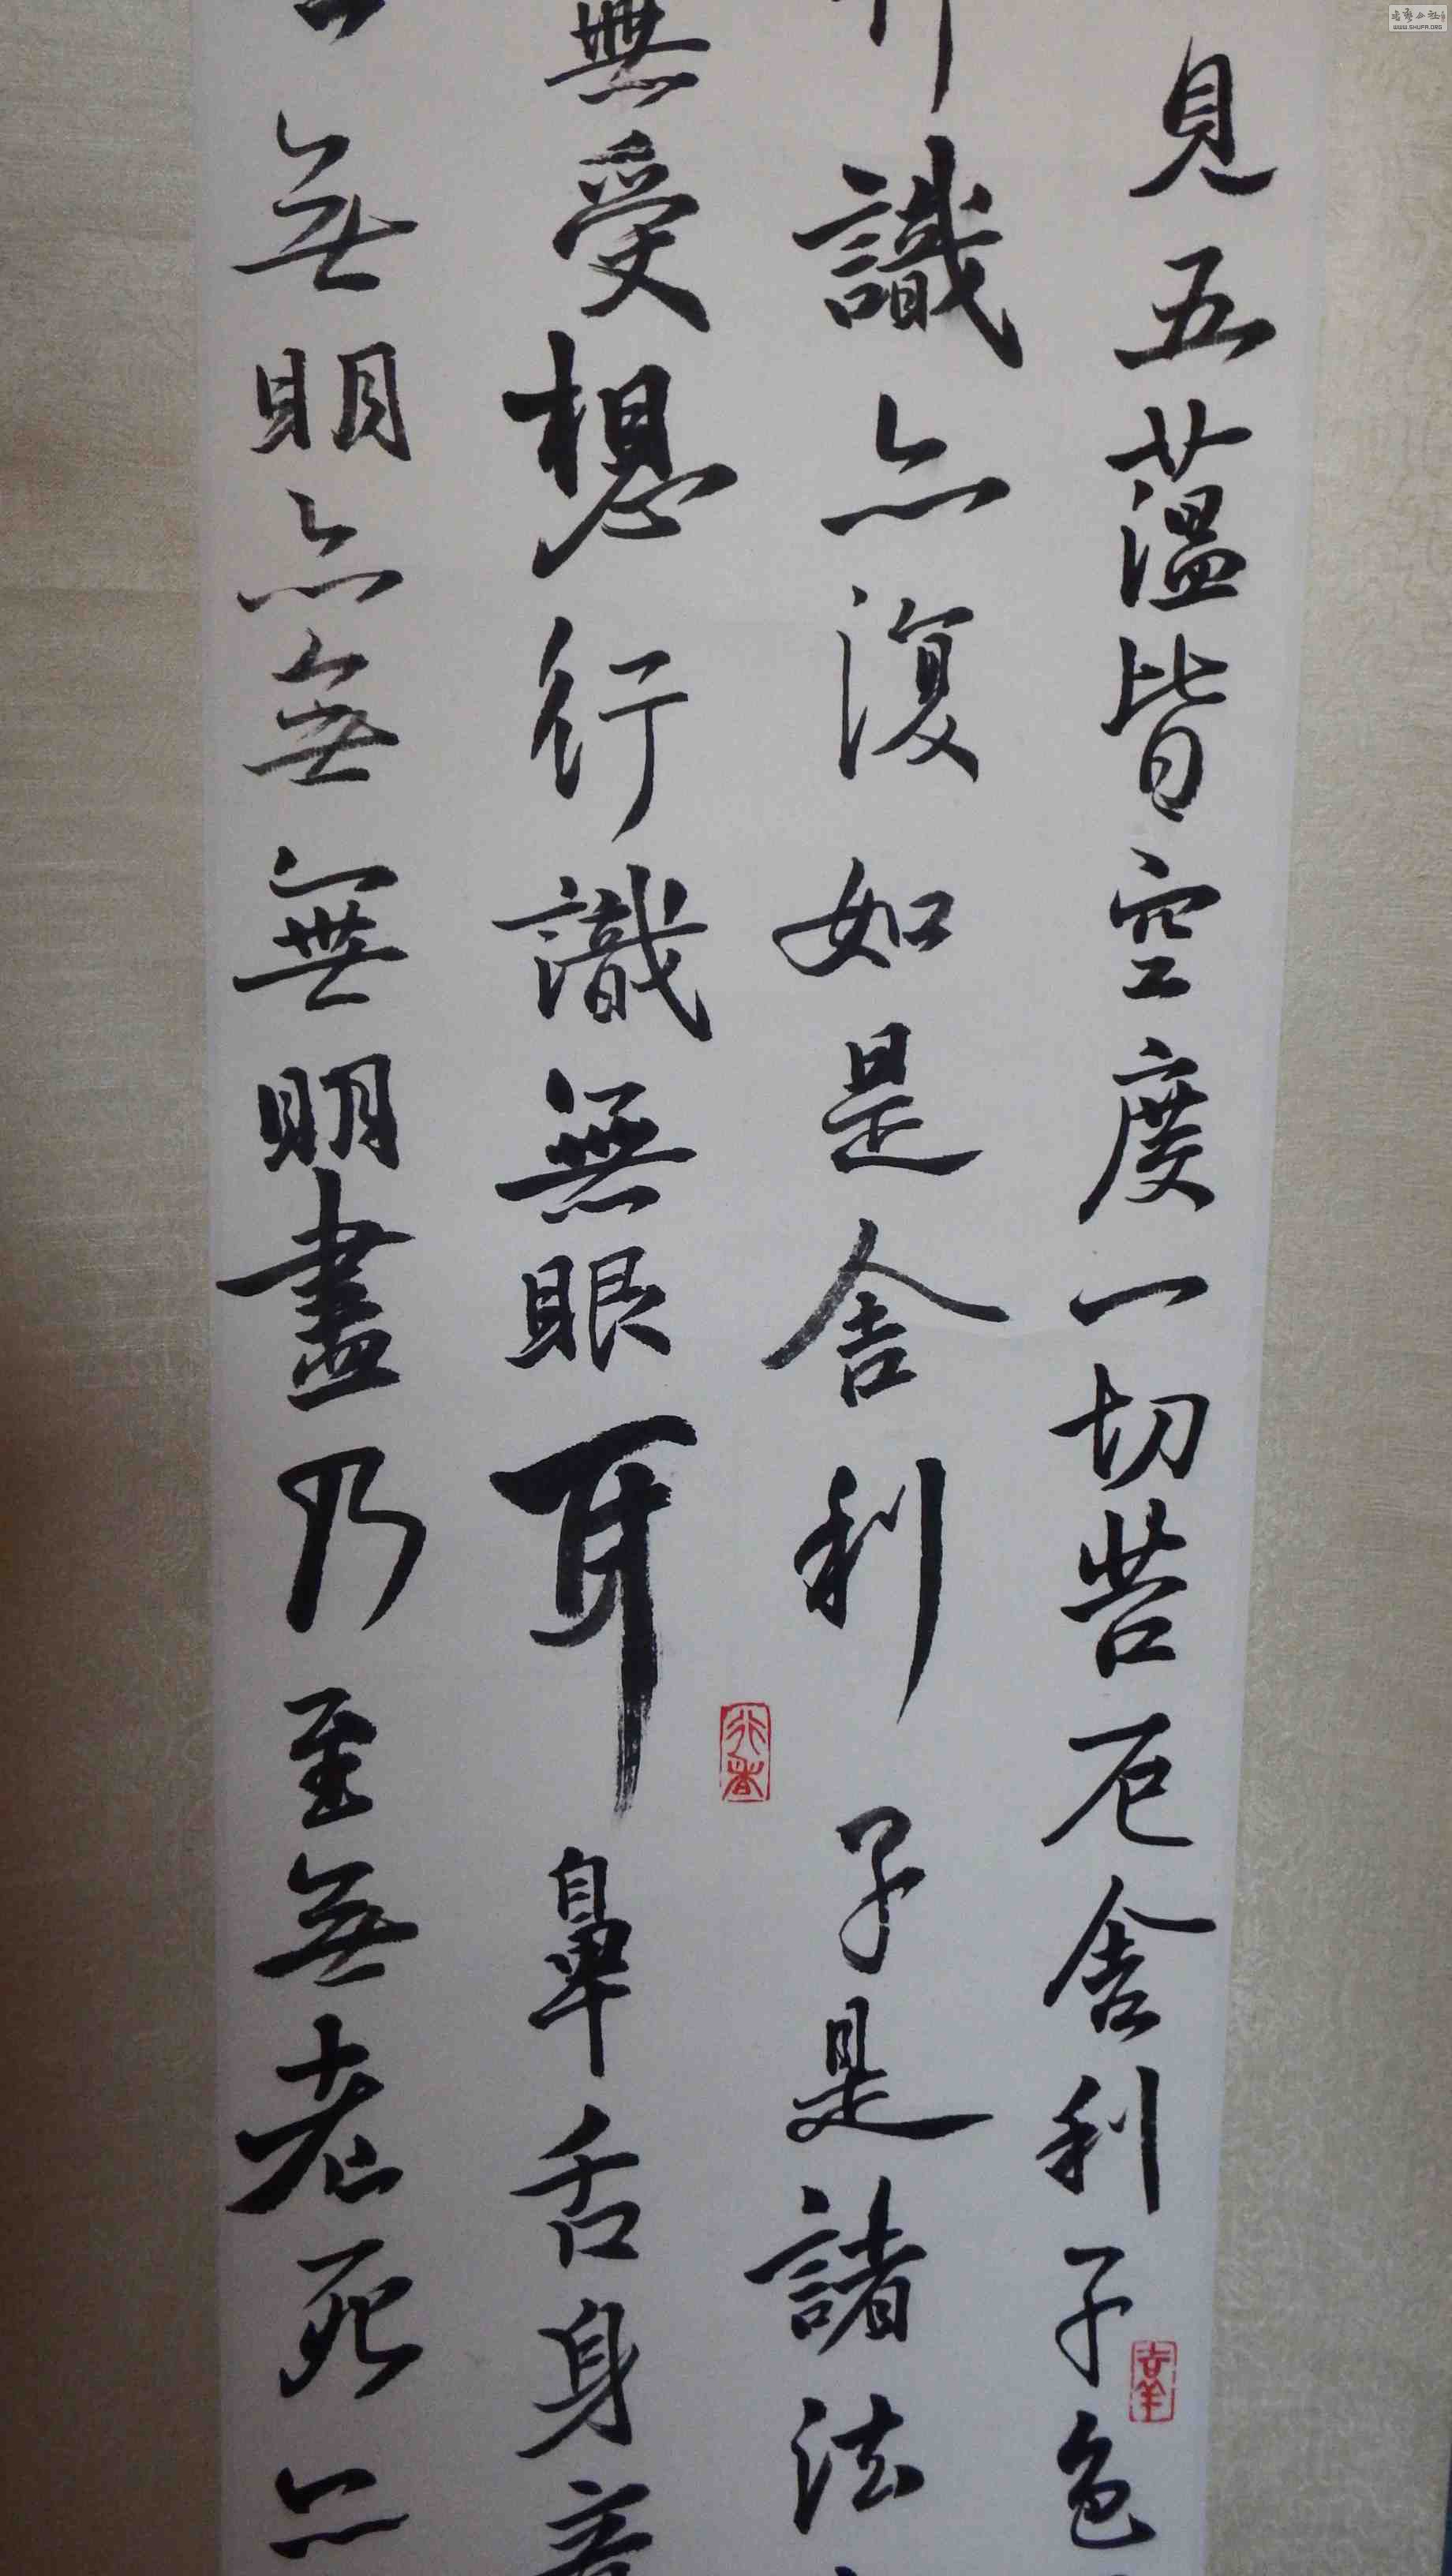 見五蘊皆空度一切苦厄舍利子色
行識亦復如是舍利子是諸法
無受想行識無眼耳鼻舌身意
無明亦無無明盡乃至無老死亦
行者
吉羊
WWW.SHUFA.ORG